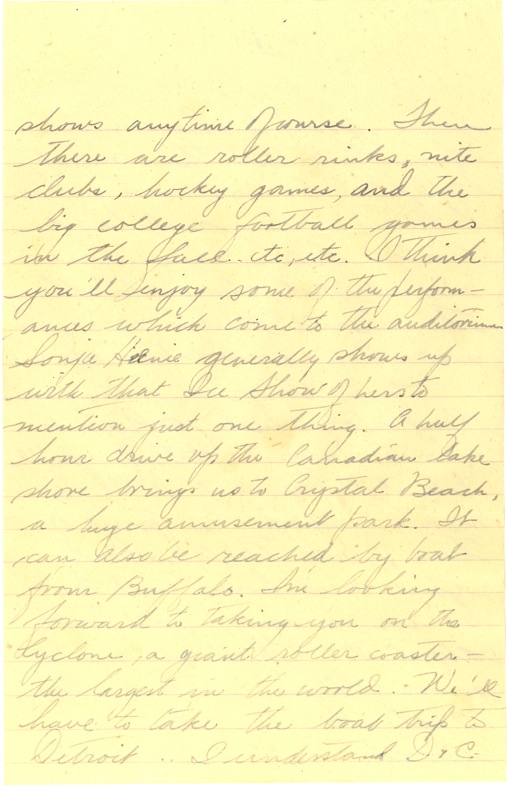 shows anytime of course. Then
there are roller rinks, nite
clubs, hockey games, and the
big college football games
in the fall.. etc, etc. I think
you'll enjoy some of the perform-
ances which come to the auditorium
Sonja Henie generally shows up
with that Ice Show of hers to
mention just one thing. A half
hour drive up the Canadian lake
shore brings us to Crystal Beach,
a huge amusement park. It
can also be reached by boat
from Buffalo. I'm looking
forward to taking you on the
Cyclone, a giant roller coaster -
the largest in the world. We'll
have to take the boat trip to
Detroit .. I understand D & C